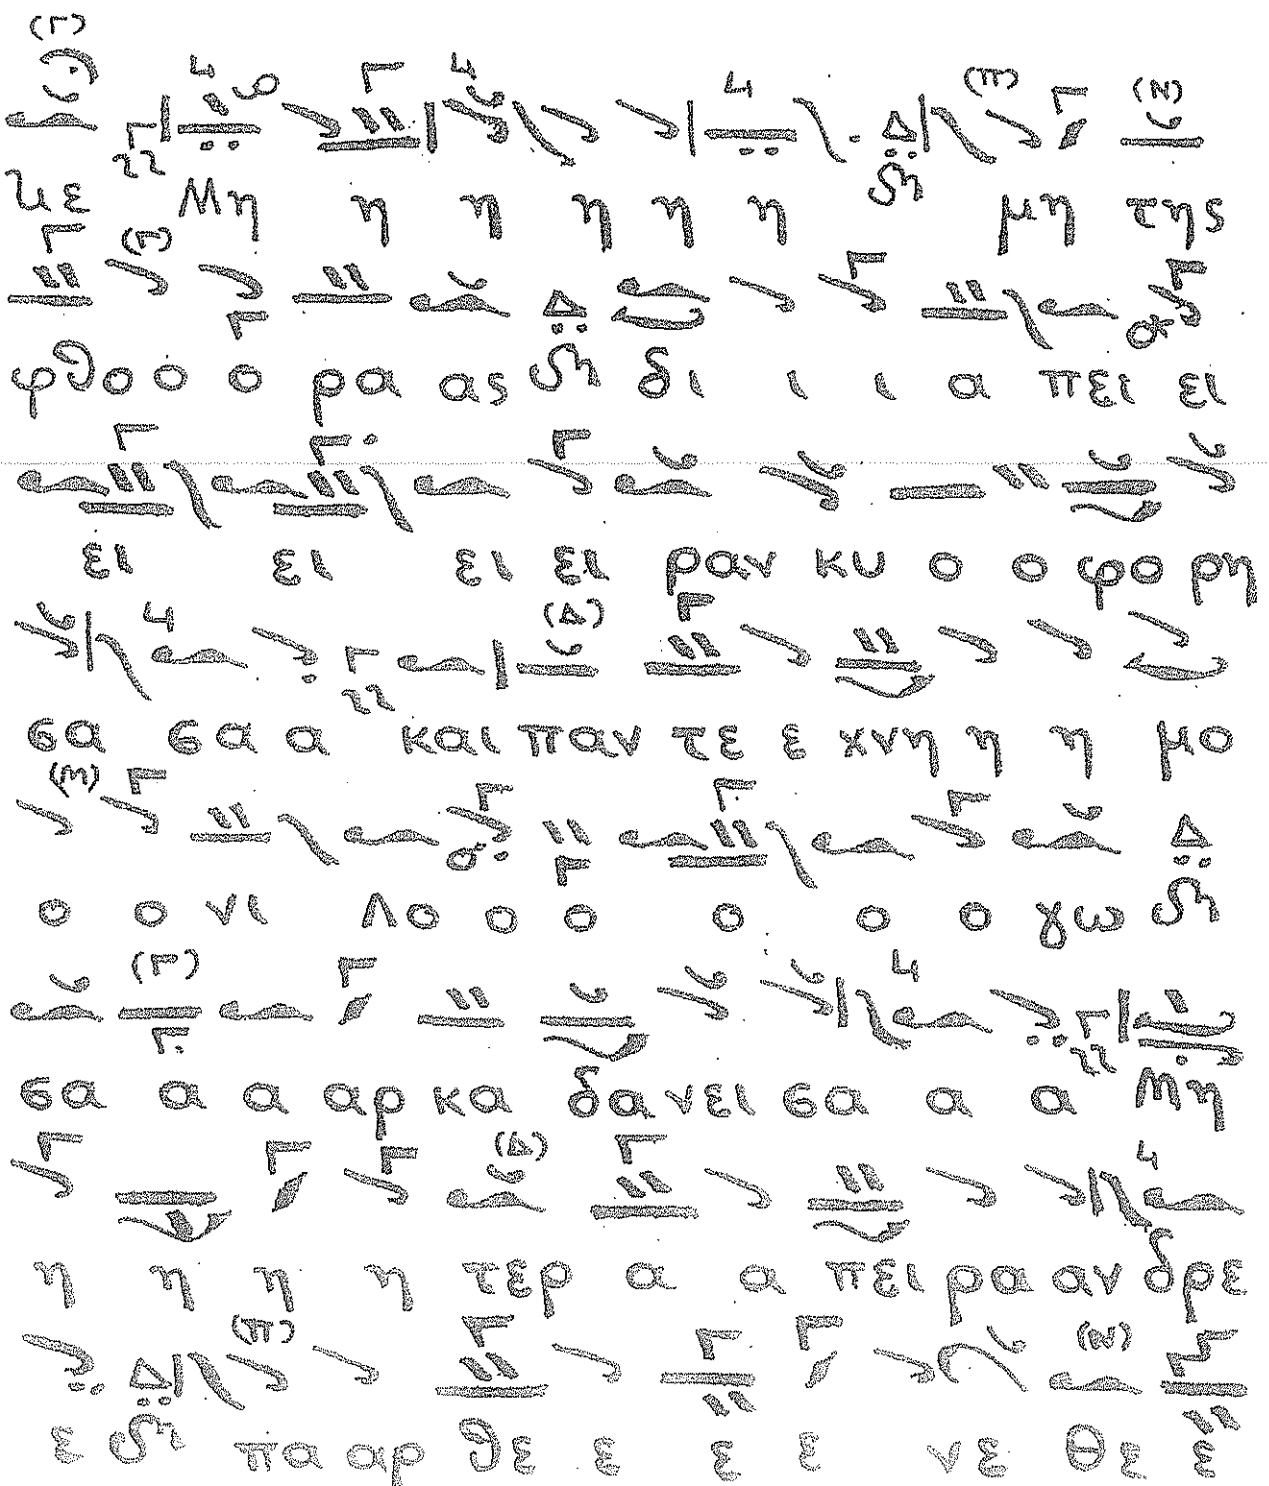 κε Μη η η η η η μη της
φθο ο ο ρα ας δι ι ι α πει ει
ει ει ει ει ραν κυ ο ο φο ρη
σα σα α και παν τε ε χνη η η μο
ο ο νι λο ο ο ο ο ο γω
σα α α αρ κα δα νει σα α α Μη
η η η η τερ α α πει ρα αν δρε
ε πα αρ θε ε ε ε νε Θε ε